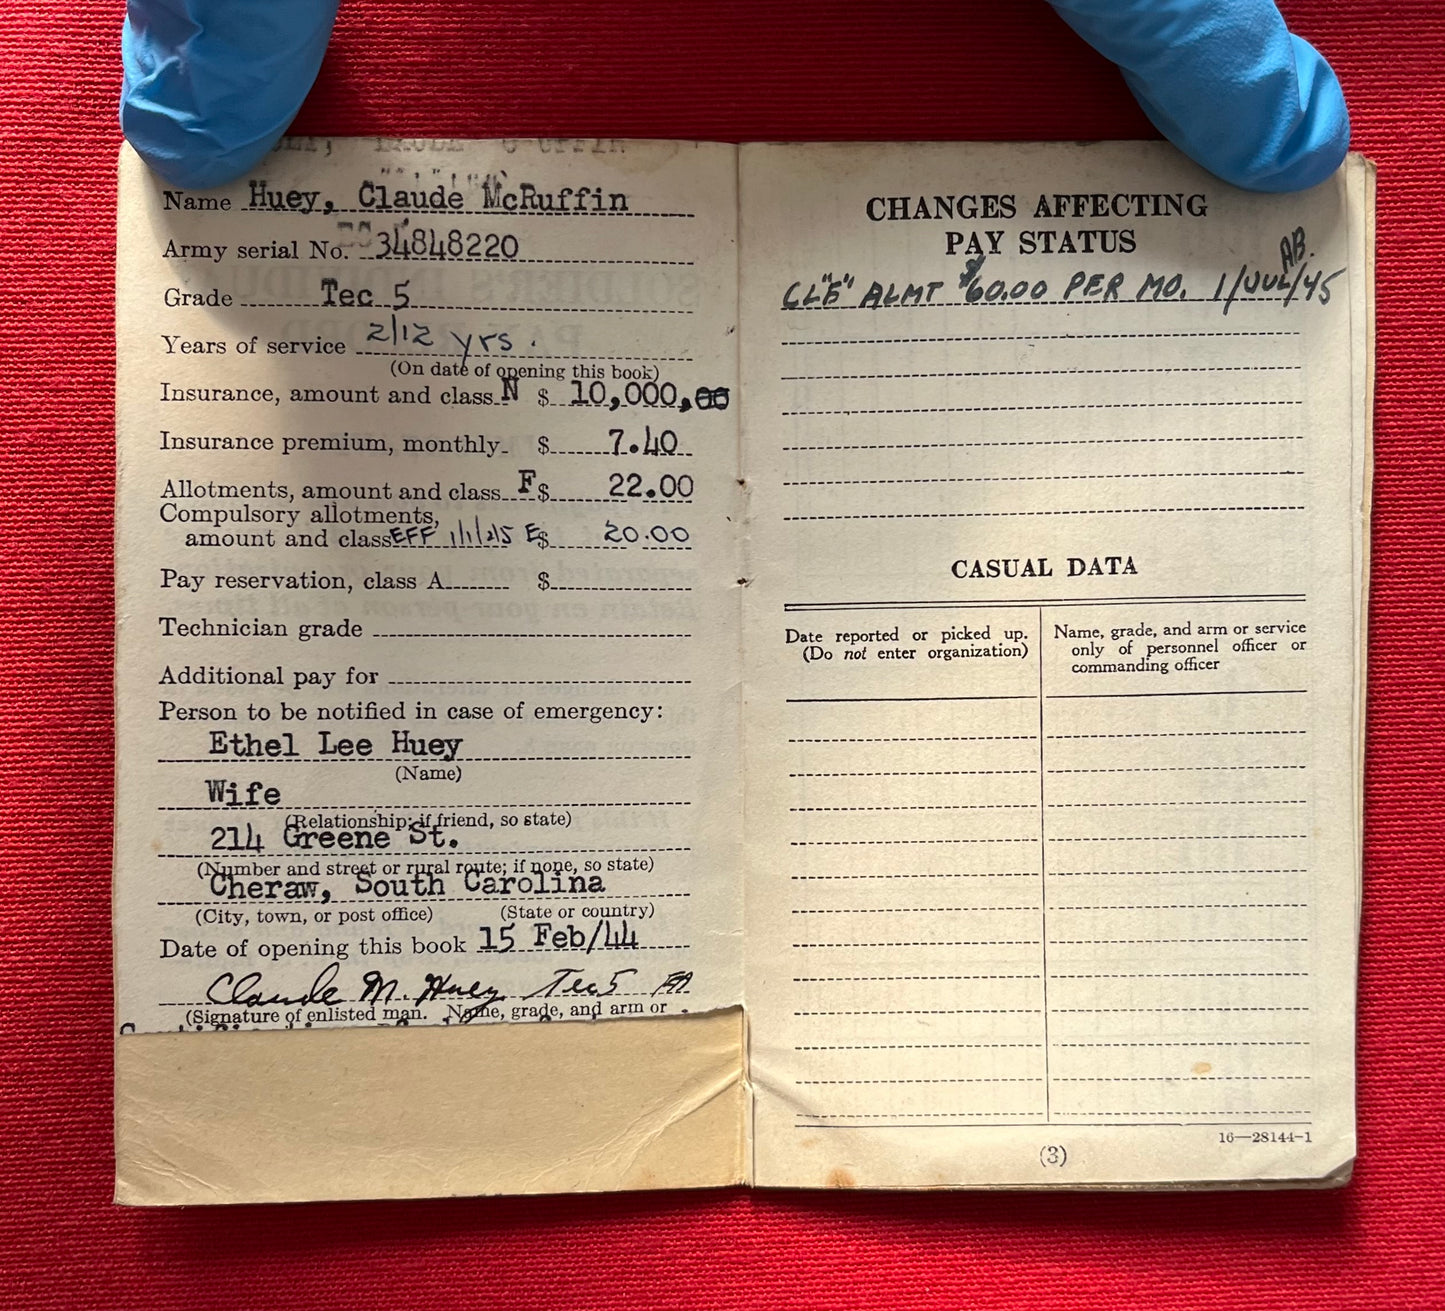 Name Huey, Claude McRuffin
Army serial No. 34848220
Grade Tec 5
Years of service 2/12 yrs.
(On date of opening this book)
Insurance, amount and class N $ 10,000.00
Insurance premium, monthly $ 7.40
Allotments, amount and class F $ 22.00
Compulsory allotments,
amount and class EFF E $ 20.00
Pay reservation, class A $
Technician grade
Additional pay for
Person to be notified in case of emergency:
Ethel Lee Huey
(Name)
Wife
(Relationship; if friend, so state)
214 Greene St.
(Number and street or rural route; if none, so state)
Cheraw, South Carolina
(City, town, or post office) (State or country)
Date of opening this book 15 Feb/44
Claude M. Huey Tec 5 FA
(Signature of enlisted man. Name, grade, and arm or
CHANGES AFFECTING
PAY STATUS
AB.
CL "E" ALMT $60.00 PER MO. 1/JUL/45
CASUAL DATA
Date reported or picked up. (Do not enter organization)
Name, grade, and arm or service only of personnel officer or commanding officer
16—28144-1
(3)